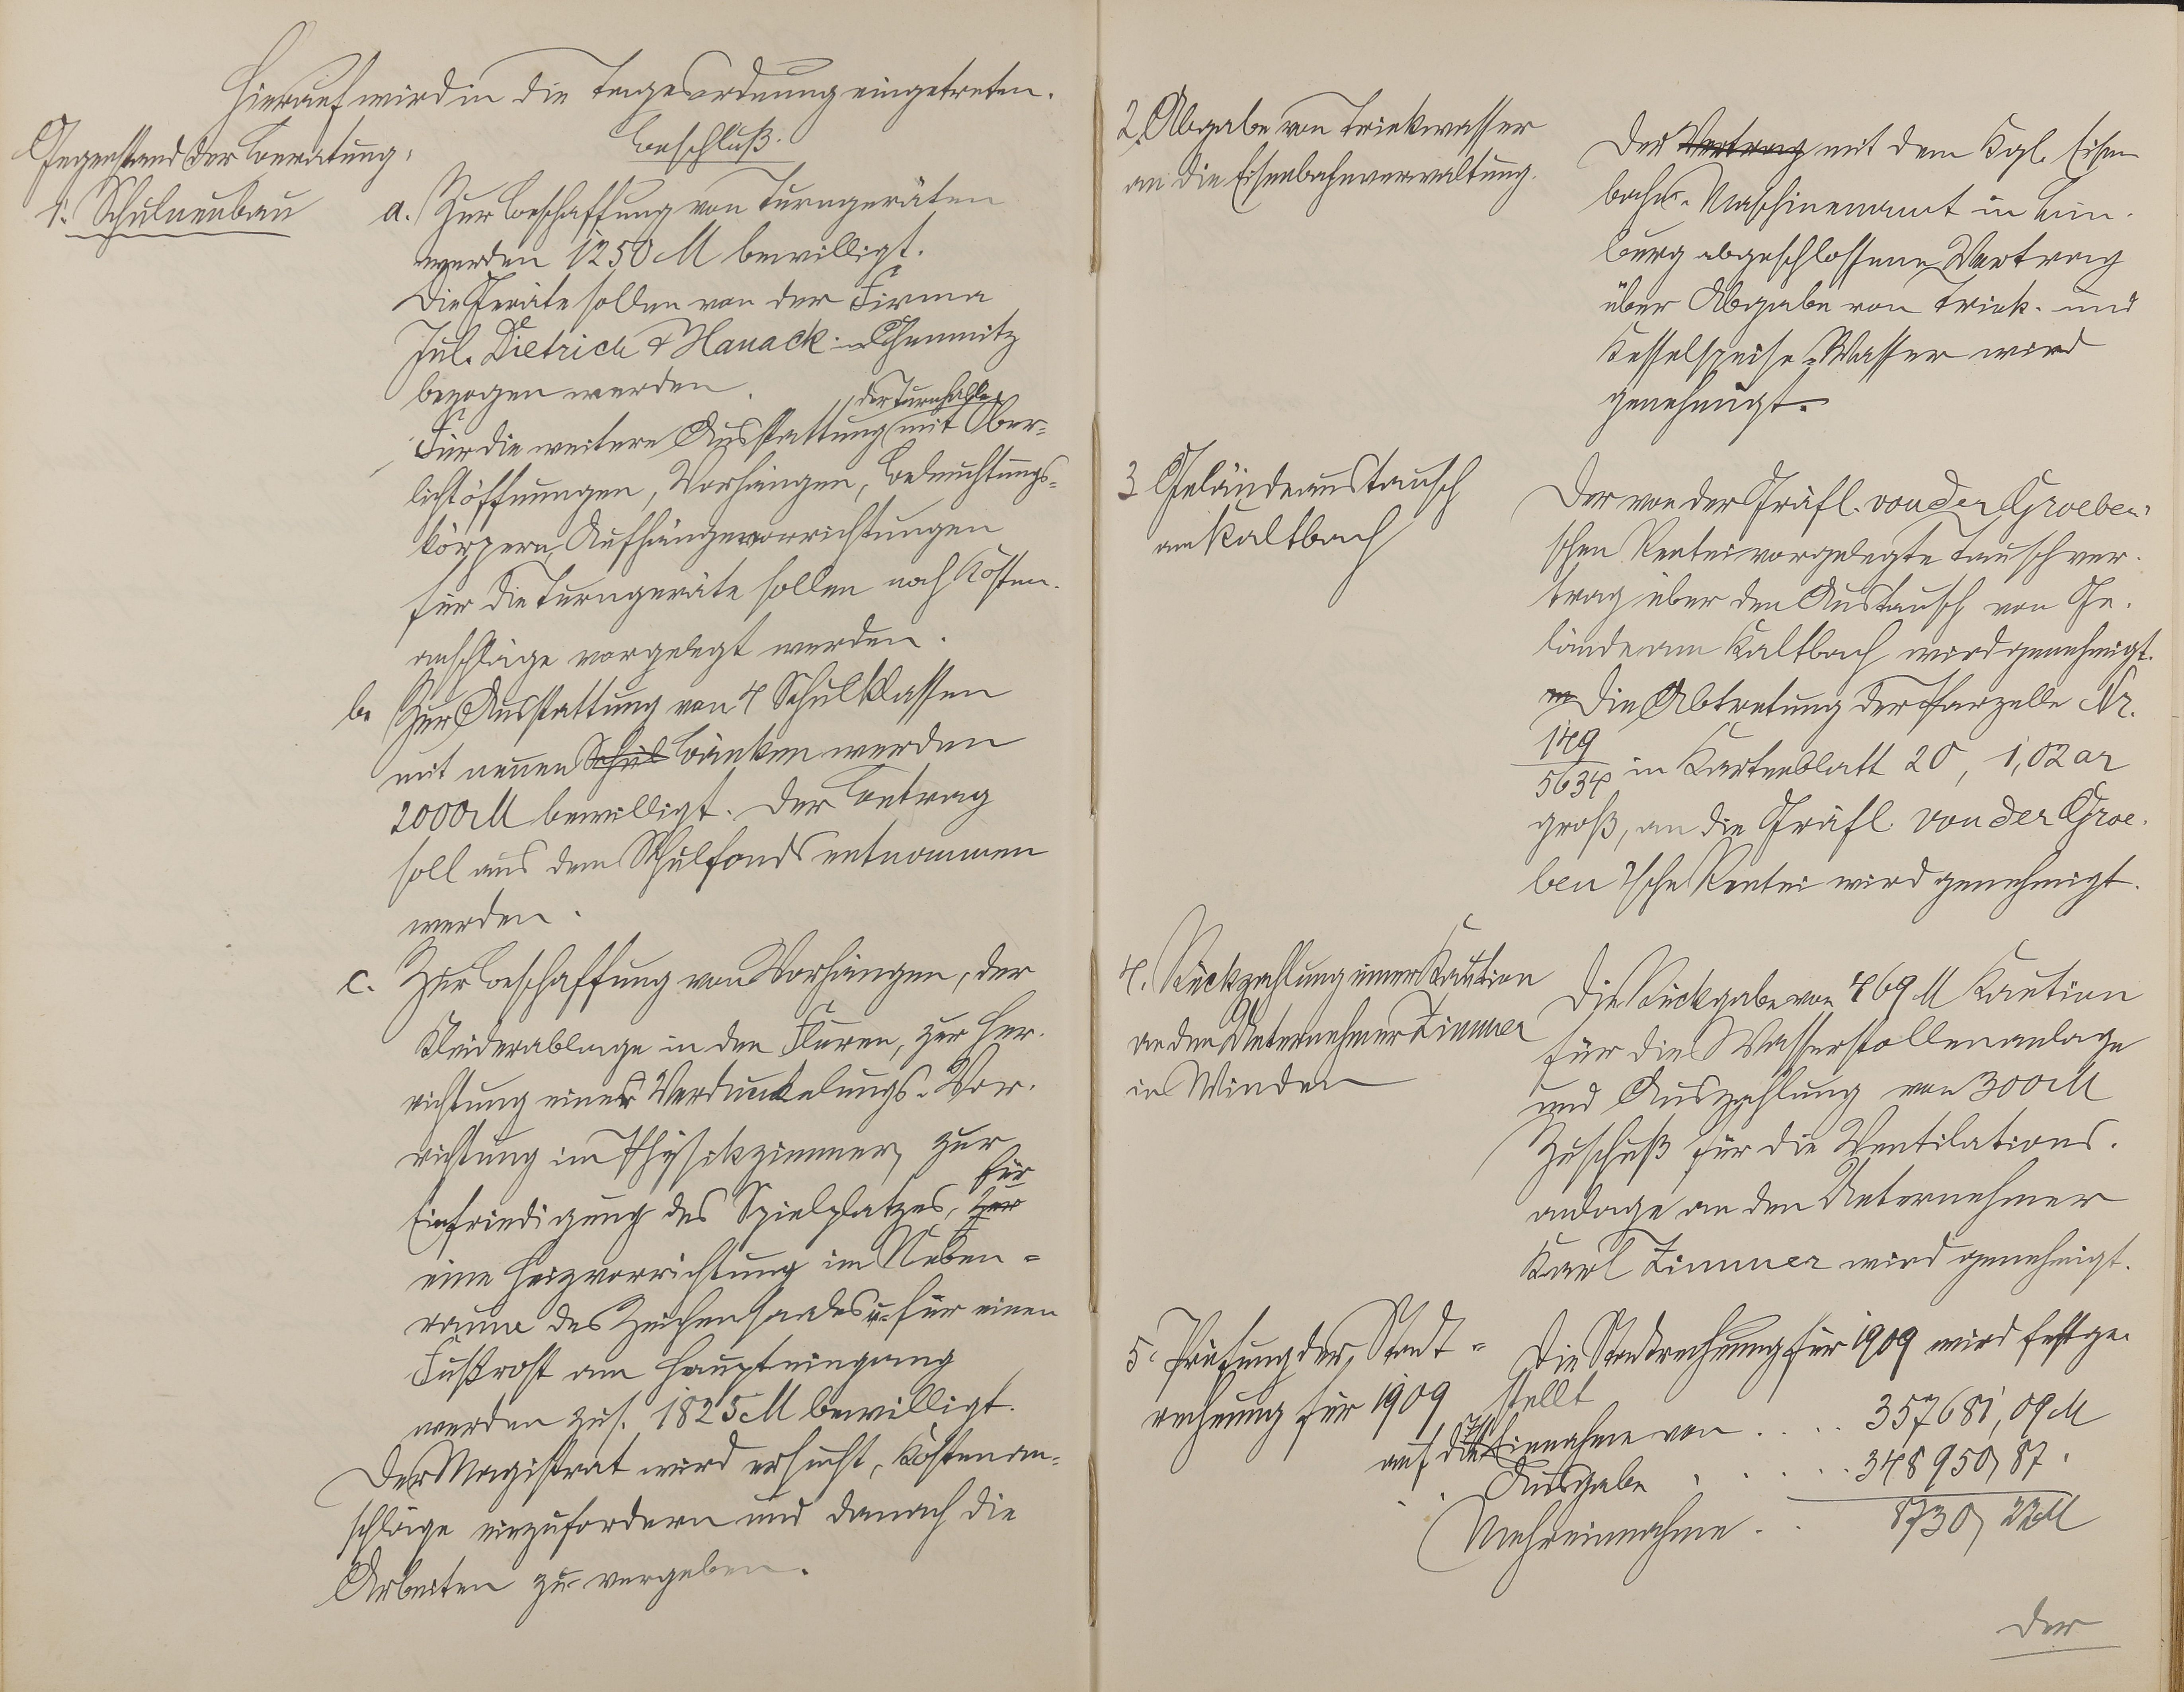 Hierauf wird in die Tagesordnung eingetreten.
Gegenstand der Beratung:
Beschluß:
1. Schulneubau
a. Zur Beschaffung von Turngeräten
werden 1250 M bewilligt.
Die Geräte sollen von der Firma
Jul. Dietrich & Hanack in Chemnitz
bezogen werden.
der Turnhalle
Für die weitere Ausstattung mit Ober-
lichtöffnungen, Vorhängen, Beleuchtungs-
körpern, Aufhängevorrichtungen
für die Turngeräte sollen noch Kosten-
anschläge vorgelegt werden.
b. Zur Ausstattung von 4 Schulklassen
mit neuen Schul Bänken werden
2000 M bewilligt. Der Betrag
soll aus dem Schulfonds entnommen
werden.
c. Zur Beschaffung von Vorhängen, der
Kleiderablage in den Fluren, zur Her-
richtung einer Verdunkelungs-Vor-
richtung im Physikzimmer, zur
für
Einfriedigung des Spielplatzes, zur
eine Heizvorrichtung im Neben-
raume des Zeichensaales u. für einen
Fußrost am Haupteingang
werden zus. 1825 M bewilligt.
Der Magistrat wird ersucht, Kostenan-
schläge einzufordern und danach die
Arbeiten zu vergeben.
2. Abgabe von Trinkwasser
an die Eisenbahnverwaltung.
Der Vertrag mit dem Kgl. Eisen
bahn-Maschinenamt in Lim-
burg abgeschlossene Vertrag
über Abgabe von Trink- und
Kesselspeise-Wasser wird
genehmigt.
3 Geländeaustausch
am Kaltbach
Der von der Gräfl. von der Groeben'
schen Rentei vorgelegte Tauschver-
trag über den Austausch von Ge-
lände am Kaltbach wird genehmigt.
Die Abtretung der Parzelle Nr.
149
5634 in Kartenblatt 20, 1,02 ar
groß, an die Gräfl. von der Groe-
ben'sche Rentei wird genehmigt.
4. Rückzahlung einer Kaution
an den Unternehmer Zimmer
in Winden
Die Rückgabe von 469 M Kaution
für die Wasserstollenanlage
und Auszahlung von 300 M
Zuschuß für die Ventilations-
anlage an den Unternehmer
Karl Zimmer wird genehmigt.
5. Prüfung der Stadt-
rechnung für 1909
Die Stadtrechnung für 1909 wird festge-
stellt
auf die Einnahme von . . . . 357681,09 M
" " Ausgabe " . . . . 348950,87 "
Mehreinnahme . . 8730,22 M
Der